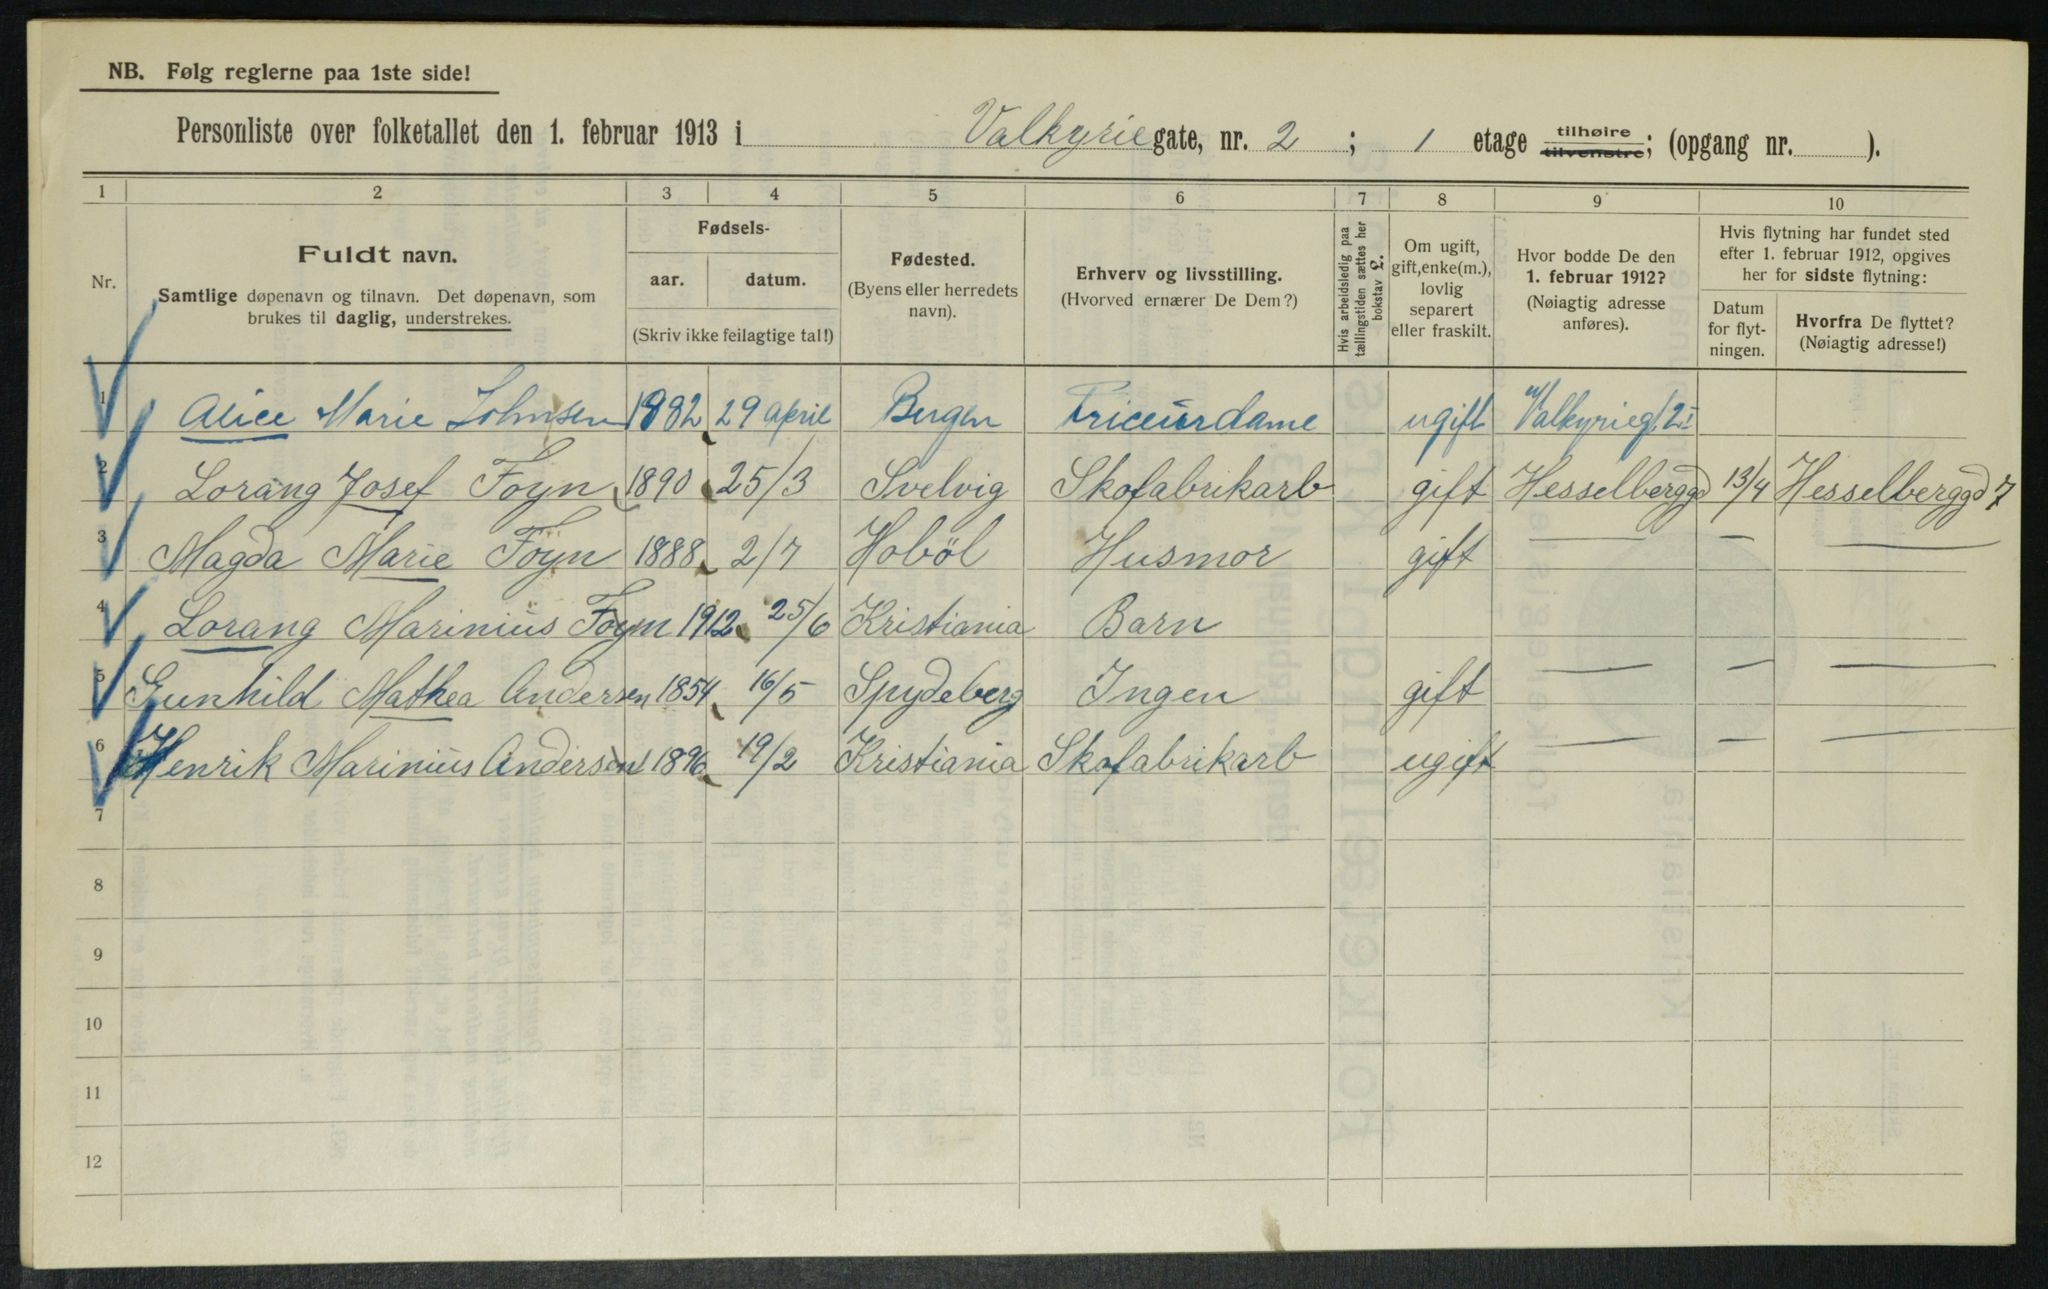 NB. Følg reglerne paa 1ste side!
Personliste over folketallet den 1. februar 1913 i Valkyrie gate, nr. 2 ; 1 etage tilhøire tilvenstre; (opgang nr. ).
1 2 3 4 5 6 7 8 9 10
Nr.
Fuldt navn.
Samtlige døpenavn og tilnavn. Det døpenavn, som
brukes til daglig, understrekes.
Fødsels-
aar. datum.
(Skriv ikke feilagtige tal!)
Fødested.
(Byens eller herredets
navn).
Erhverv og livsstilling.
(Hvorved ernærer De Dem?)
Hvis arbeidsledig paa
tællingstiden sættes her
bokstav L.
Om ugift,
gift, enke(m.),
lovlig
separert
eller fraskilt.
Hvor bodde De den
1. februar 1912?
(Nøiagtig adresse
anføres).
Hvis flytning har fundet sted
efter 1. februar 1912, opgives
her for sidste flytning:
Datum
for flyt-
ningen.
Hvorfra De flyttet?
(Nøiagtig adresse!)
1 Alice Marie Johnsen 1882 29 april Bergen Friceurdame ugift Valkyriegt. 2 I
2 Lorang Josef Foyn 1890 25/3 Svelvig Skofabrikarb gift Hesselberggd 13/4 Hesselberggd 7
3 Magda Marie Foyn 1888 2/7 Hoböl Husmor gift — — —
4 Lorang Marinius Foyn 1912 25/6 Kristiania Barn
5 Gunhild Mathea Andersen 1854 16/5 Spydeberg Ingen gift — — —
6 Henrik Marinius Andersen 1896 19/2 Kristiania Skofabrikarb ugift — — —
7
8
9
10
11
12